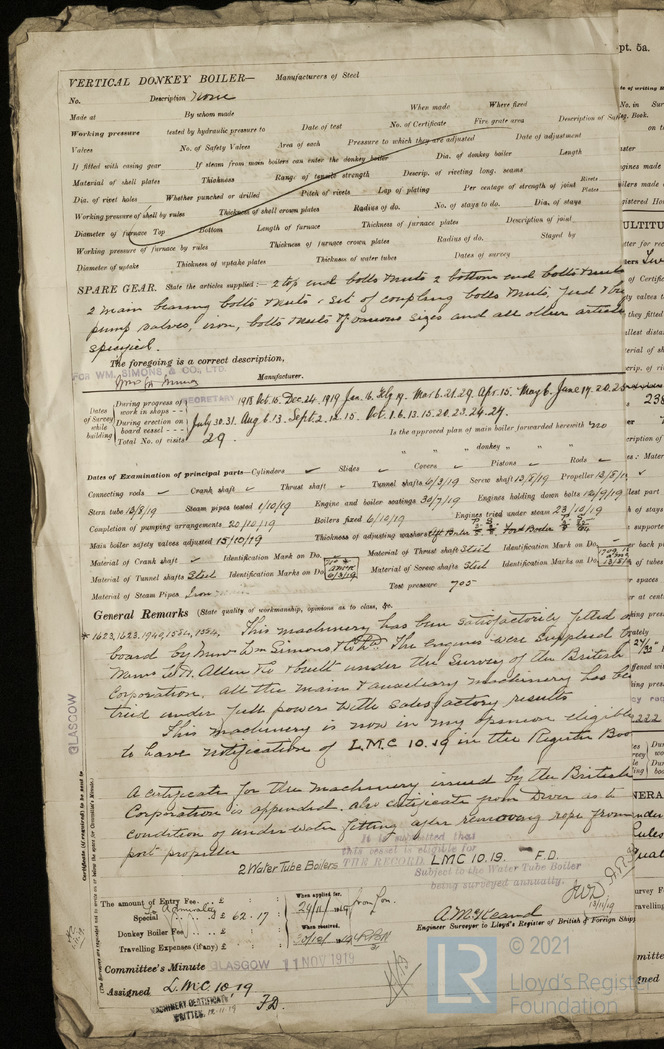 pt. 5a.
VERTICAL DONKEY BOILER— Manufacturers of Steel
No. Description None
Made at By whom made When made Where fixed
Working pressure tested by hydraulic pressure to Date of test No. of Certificate Fire grate area Description of Safety
Valves No. of Safety Valves Area of each Pressure to which they are adjusted Date of adjustment
If fitted with easing gear If steam from main boilers can enter the donkey boiler Dia. of donkey boiler Length
Material of shell plates Thickness Range of tensile strength Descrip. of riveting long. seams
Dia. of rivet holes Whether punched or drilled Pitch of rivets Lap of plating Per centage of strength of joint Rivets Plates
Working pressure of shell by rules Thickness of shell crown plates Radius of do. No. of stays to do. Dia. of stays
Diameter of furnace Top Bottom Length of furnace Thickness of furnace plates Description of joint
Working pressure of furnace by rules Thickness of furnace crown plates Radius of do. Stayed by
Diameter of uptake Thickness of uptake plates Thickness of water tubes Dates of survey
SPARE GEAR. State the articles supplied:— 2 top end bolts & nuts 2 bottom end bolts & nuts
2 main bearing bolts & nuts 1 set of coupling bolts & nuts, feed &
pump valves, iron, bolts & nuts of various sizes and all other articles
specified.
The foregoing is a correct description,
FOR WM. SIMONS & CO., LTD. Manufacturer.
SECRETARY
Dates of Survey while building
During progress of work in shops - - 1918 Oct. 15. Dec. 24. 1919 Jan. 16. July 19. Mar 6. 21. 29. Apr. 15. May 6. June 17. 20. 25
During erection on board vessel - - - July 30. 31. Aug 6. 13. Sept. 2. 12. 15. Oct. 1. 6. 13. 15. 20. 23. 24. 27.
Total No. of visits 29. Is the approved plan of main boiler forwarded herewith No
" " " donkey " " "
Dates of Examination of principal parts—Cylinders ✓ Slides ✓ Covers ✓ Pistons ✓ Rods ✓
Connecting rods ✓ Crank shaft ✓ Thrust shaft ✓ Tunnel shafts 6/3/19 Screw shaft 13/8/19 Propeller 13/8/19
Stern tube 13/8/19 Steam pipes tested 1/10/19 Engine and boiler seatings 30/7/19 Engines holding down bolts 12/9/19
Completion of pumping arrangements 20/10/19 Boilers fixed 6/10/19 Engines tried under steam 23/10/19
Main boiler safety valves adjusted 15/10/19 Thickness of adjusting washers Aft Boiler Ford Boiler
Material of Crank shaft ✓ Identification Mark on Do. ✓ Material of Thrust shaft Steel Identification Mark on Do. ✓
Material of Tunnel shafts Steel Identification Marks on Do. 6/3/19 Material of Screw shafts Steel Identification Marks on Do. 13/8/19
Material of Steam Pipes Iron Test pressure 705
General Remarks (State quality of workmanship, opinions as to class, &c.
This machinery has been satisfactorily fitted on
board by Messrs Wm Simons & Co Ltd The engines were supplied by
Messrs W.H. Allen & Co & built under the Survey of the British
Corporation. All the main & auxiliary machinery has been
tried under full power with satisfactory results
This machinery is now in my opinion eligible
to have notification of L.M.C 10.19 in the Register Book
A certificate for the machinery issued by the British
Corporation is appended. Also certificate from Diver as to
condition of under water fitting after removing rope from
port propeller
It is submitted that
this vessel is eligible for
THE RECORD
2 Water Tube Boilers LMC 10.19. F.D.
Subject to the Water Tube Boiler
being surveyed annually.
GLASGOW
Certificate (if required) to be sent to
(The Surveyors are requested not to write on or below the space for Committee's Minute.)
The amount of Entry Fee.. £ : : When applied for,
Special .. .. £ 62 . 17 24/11/1919
Donkey Boiler Fee .. £ : : When received,
Travelling Expenses (if any) £ : :
A. McKeand
Engineer Surveyor to Lloyd's Register of British & Foreign Shipping
Committee's Minute GLASGOW 11 NOV 1919
Assigned L.M.C 10.19
F.D.
MACHINERY CERTIFICATE
WRITTEN. 12.11.19
LR
© 2021
Lloyd's Register
Foundation